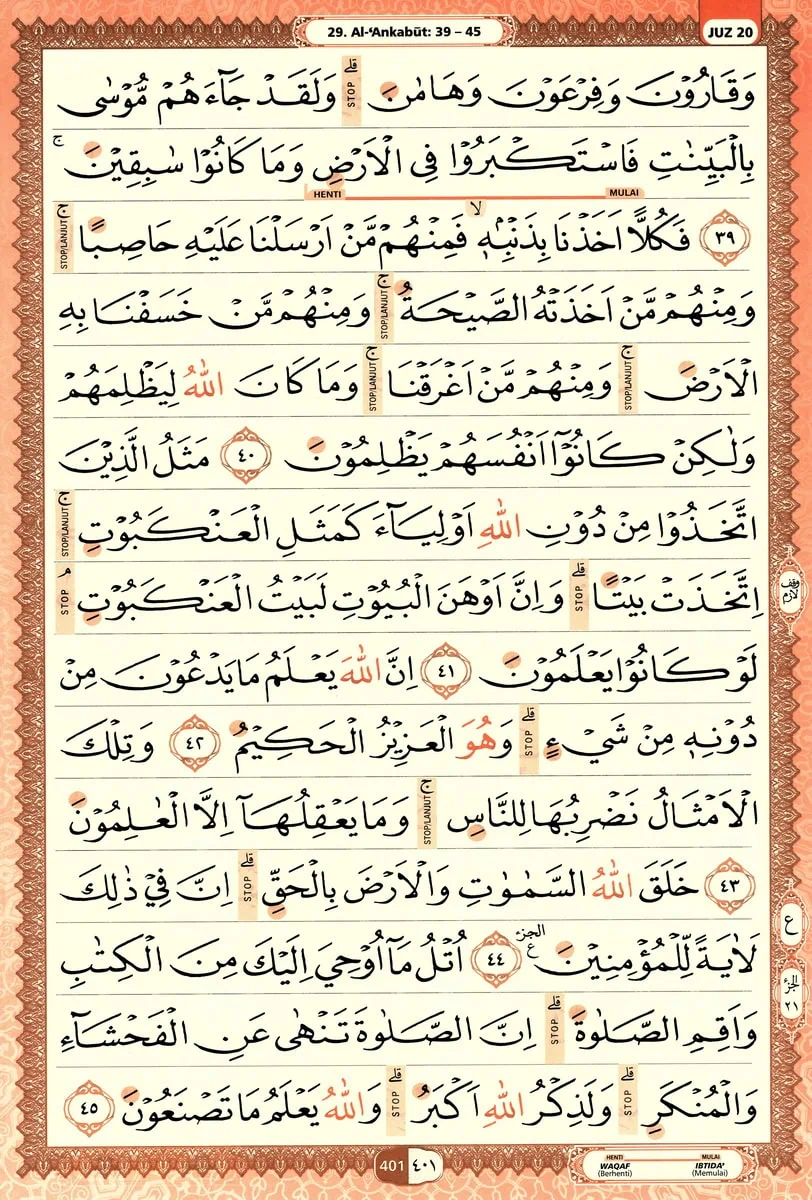 29. Al-‘Ankabūt: 39 – 45
JUZ 20
وَقَارُوْنَ وَفِرْعَوْنَ وَهَامٰنَۗ STOP وَلَقَدْ جَاۤءَهُمْ مُّوْسٰى
بِالْبَيِّنٰتِ فَاسْتَكْبَرُوْا فِى الْاَرْضِ وَمَا كَانُوْا سٰبِقِيْنَۚ
HENTI MULAI
﴿٣٩﴾ فَكُلًّا اَخَذْنَا بِذَنْۢبِهٖۙ فَمِنْهُمْ مَّنْ اَرْسَلْنَا عَلَيْهِ حَاصِبًاۚ STOP/LANJUT
وَمِنْهُمْ مَّنْ اَخَذَتْهُ الصَّيْحَةُۚ STOP/LANJUT وَمِنْهُمْ مَّنْ خَسَفْنَا بِهِ
الْاَرْضَۚ STOP/LANJUT وَمِنْهُمْ مَّنْ اَغْرَقْنَاۚ STOP/LANJUT وَمَا كَانَ اللّٰهُ لِيَظْلِمَهُمْ
وَلٰكِنْ كَانُوْٓا اَنْفُسَهُمْ يَظْلِمُوْنَ ﴿٤٠﴾ مَثَلُ الَّذِيْنَ
اتَّخَذُوْا مِنْ دُوْنِ اللّٰهِ اَوْلِيَاۤءَ كَمَثَلِ الْعَنْكَبُوْتِۚ STOP/LANJUT
اِتَّخَذَتْ بَيْتًاۗ STOP وَاِنَّ اَوْهَنَ الْبُيُوْتِ لَبَيْتُ الْعَنْكَبُوْتِۘ STOP
لَوْ كَانُوْا يَعْلَمُوْنَ ﴿٤١﴾ اِنَّ اللّٰهَ يَعْلَمُ مَا يَدْعُوْنَ مِنْ
دُوْنِهٖ مِنْ شَيْءٍۗ STOP وَهُوَ الْعَزِيْزُ الْحَكِيْمُ ﴿٤٢﴾ وَتِلْكَ
الْاَمْثَالُ نَضْرِبُهَا لِلنَّاسِۚ STOP/LANJUT وَمَا يَعْقِلُهَآ اِلَّا الْعٰلِمُوْنَ
﴿٤٣﴾ خَلَقَ اللّٰهُ السَّمٰوٰتِ وَالْاَرْضَ بِالْحَقِّۗ STOP اِنَّ فِيْ ذٰلِكَ
لَاٰيَةً لِّلْمُؤْمِنِيْنَ ع الجزء ﴿٤٤﴾ اُتْلُ مَآ اُوْحِيَ اِلَيْكَ مِنَ الْكِتٰبِ
وَاَقِمِ الصَّلٰوةَۗ STOP اِنَّ الصَّلٰوةَ تَنْهٰى عَنِ الْفَحْشَاۤءِ
وَالْمُنْكَرِۗ STOP وَلَذِكْرُ اللّٰهِ اَكْبَرُۗ STOP وَاللّٰهُ يَعْلَمُ مَا تَصْنَعُوْنَ ﴿٤٥﴾
وقف لازم
ع
الجزء ٢١
401 ٤٠١
HENTI MULAI
WAQAF IBTIDA’
(Berhenti) (Memulai)